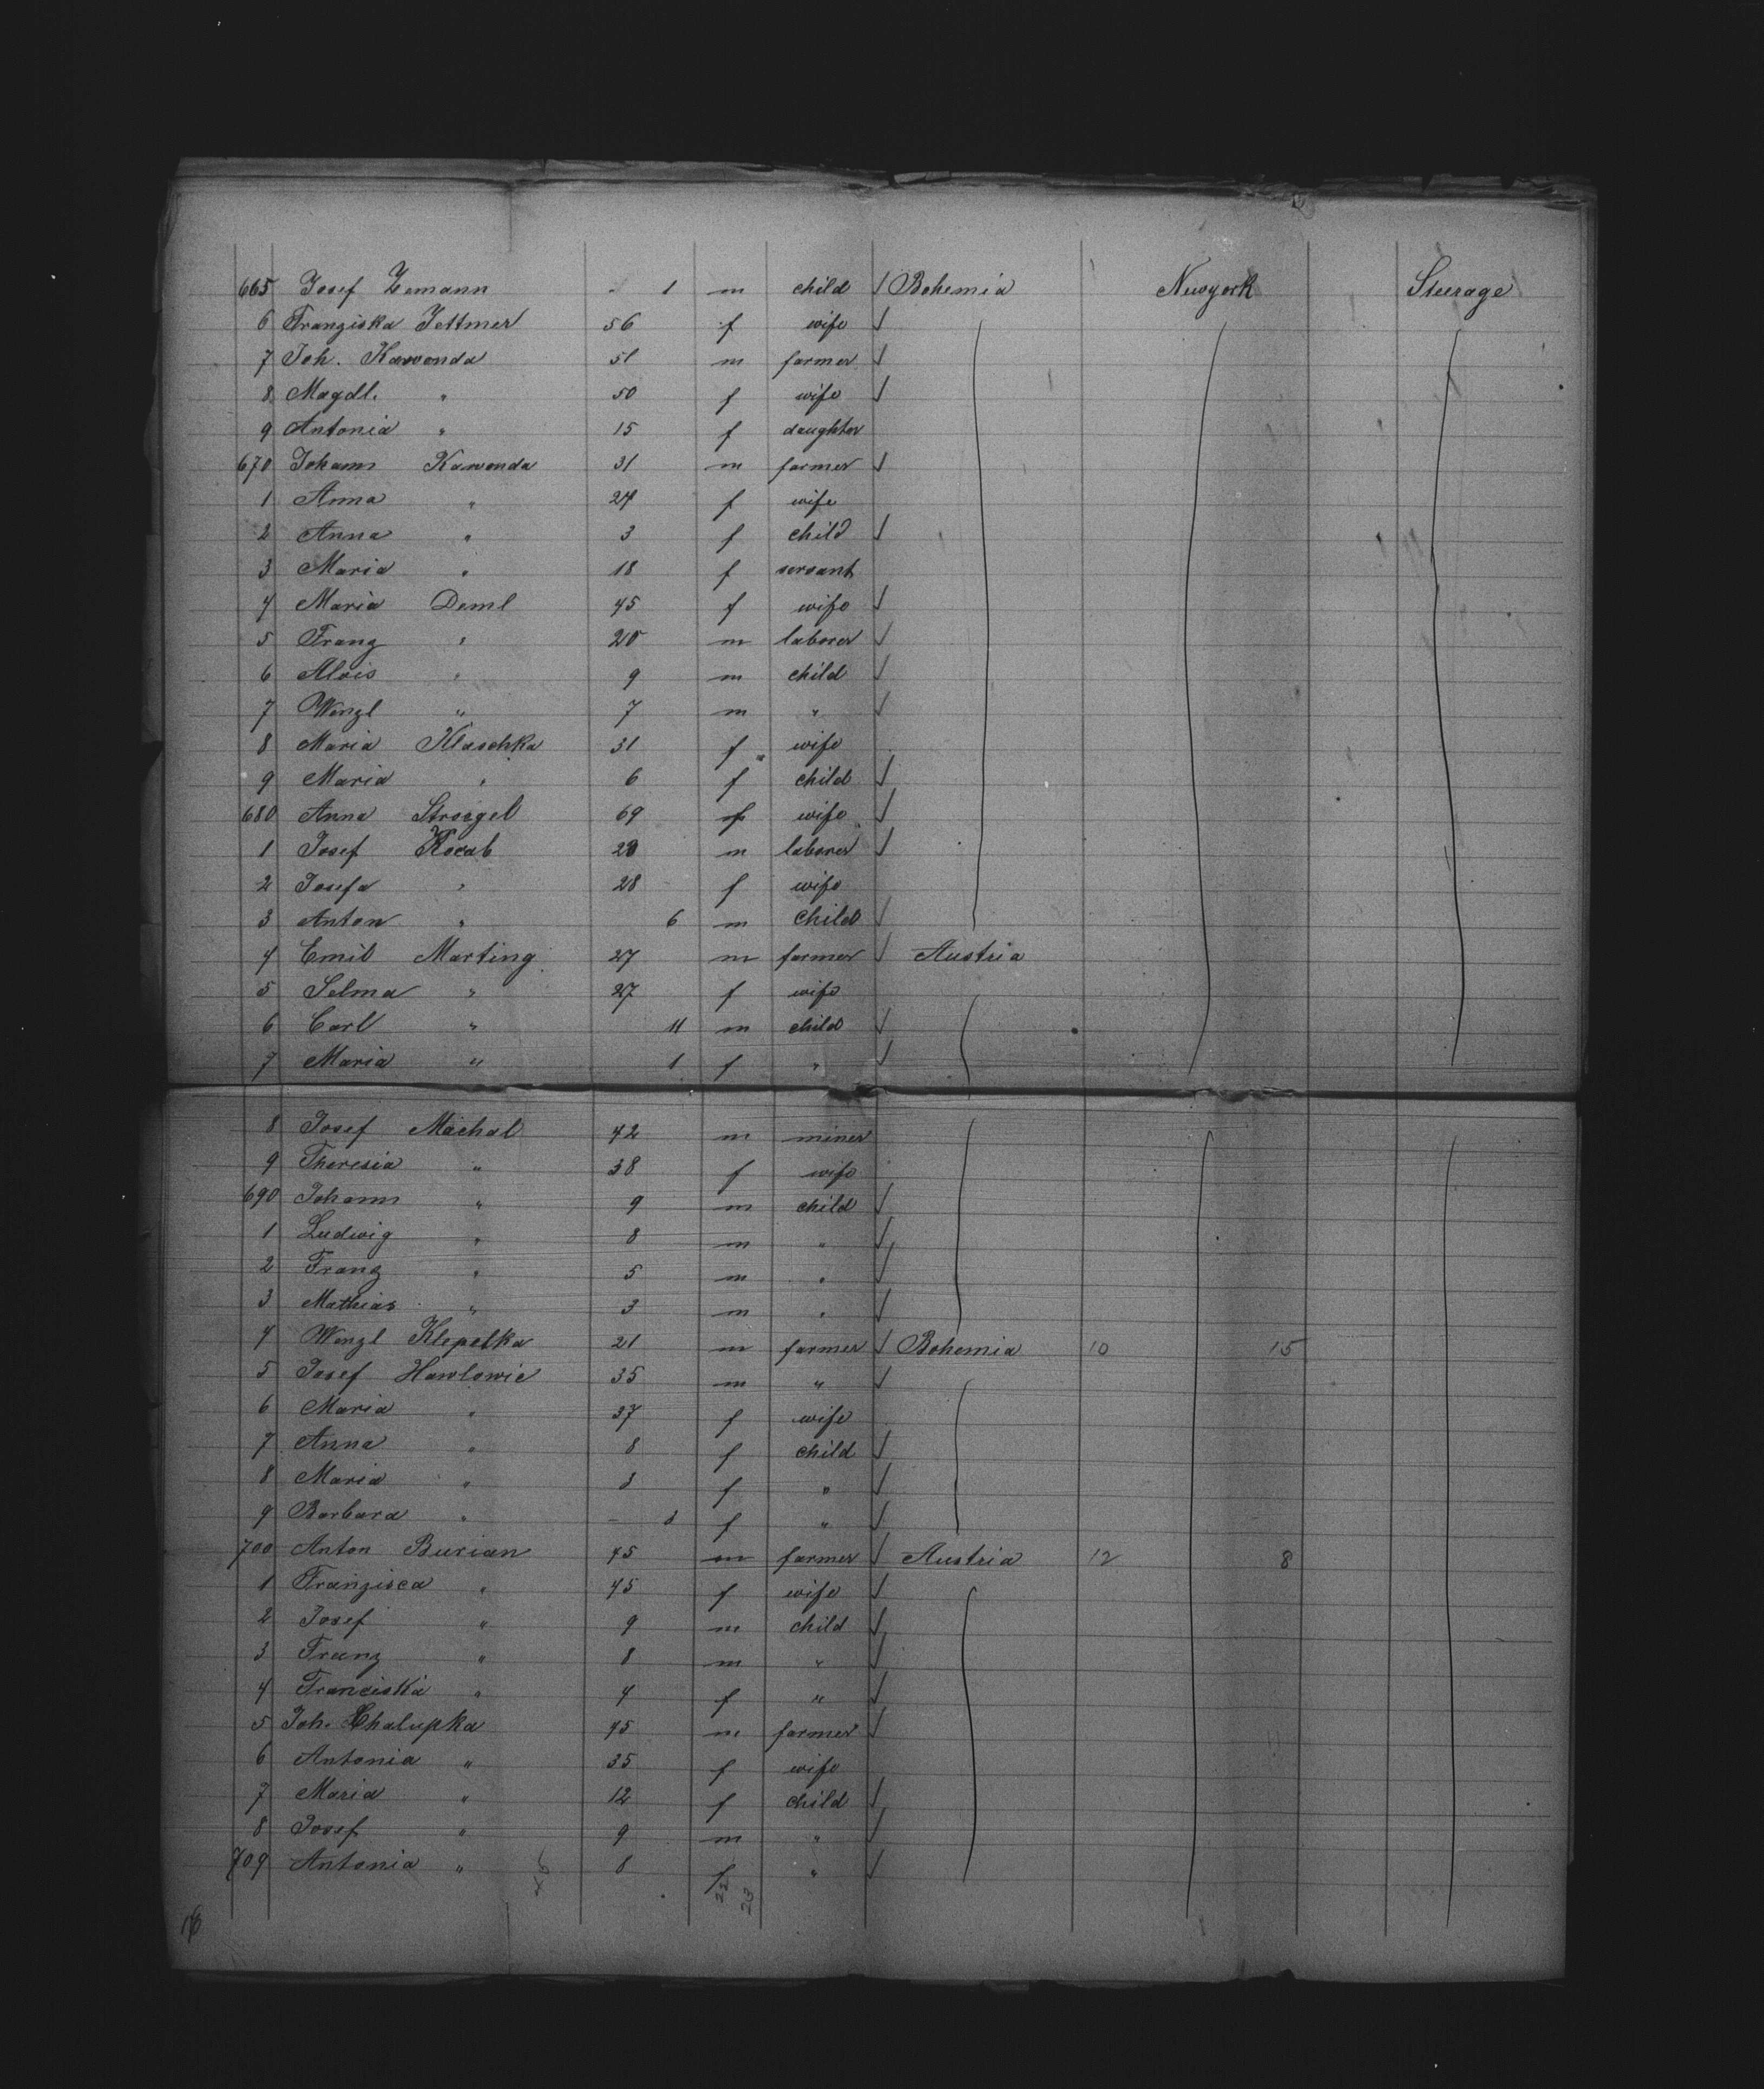 665 Josef Zemann - 1 m child √ Bohemia Newyork Steerage
6 Franziska Jettmer 56 f wife √
7 Joh. Kawonda 51 m farmer √
8 Magdl. " 50 f wife √
9 Antonia " 15 f daughter
670 Johann Kawonda 31 m farmer √
1 Anna " 24 f wife
2 Anna " 3 f child √
3 Maria " 18 f servant
4 Maria Deml 45 f wife √
5 Franz " 20 m laborer √
6 Alois " 9 m child √
7 Wenzl " 7 m " √
8 Maria Klaschka 31 f wife
9 Maria " 6 f child √
680 Anna Strozgel 69 f wife √
1 Josef Kocab 28 m laborer √
2 Josefa " 28 f wife
3 Anton " 6 m child √
4 Emil Marting 27 m farmer √ Austria
5 Selma " 27 f wife
6 Carl " 11 m child √
7 Maria " 1 f " √
8 Josef Machal 42 m miner
9 Theresia " 38 f wife
690 Johann " 9 m child √
1 Ludwig " 8 m " √
2 Franz " 5 m " √
3 Mathias " 3 m " √
4 Wenzl Klepetka 21 m farmer √ Bohemia 10 15
5 Josef Hawlowic 35 m " √
6 Maria " 37 f wife
7 Anna " 8 f child √
8 Maria " 3 f " √
9 Barbara " - 3 f " √
700 Anton Burian 45 m farmer √ Austria 12 8
1 Franzisca " 45 f wife √
2 Josef " 9 m child √
3 Franz " 8 m " √
4 Franciska " 4 f " √
5 Joh. Chalupka 45 m farmer √
6 Antonia " 35 f wife
7 Maria " 12 f child √
8 Josef " 9 m " √
709 Antonia " 8 f " √
22
23